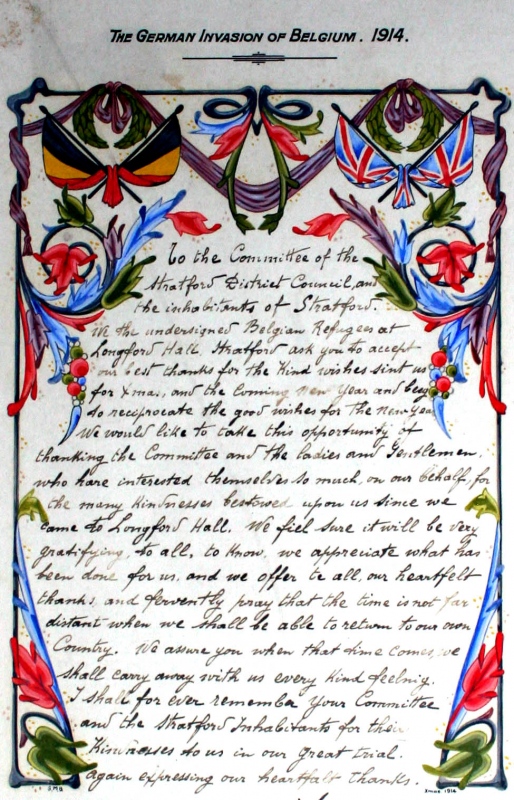 THE GERMAN INVASION OF BELGIUM. 1914.
To the Committee of the
Stratford District Council, and
the inhabitants of Stratford.
We the undersigned Belgian Refugees at
Longford Hall, Stratford ask you to accept
our best thanks for the kind wishes sint us
for Xmas, and the Coming New Year and beg
to reciprocate the good wishes for the New Year
We would like to take this opportunity of
thanking the Committee and the ladies and Gentlemen,
who have interested themselves so much, on our behalf, for
the many kindnesses bestowed upon us since we
came to Longford Hall. We fiel sure it will be very
gratifying, to all, to know, we appreciate what has
been done for us, and we offer to all, our heartfelt
thanks, and fervently pray that the time is not far
distant when we shall be able to return to our own
Country. We assure you when that time comes, we
shall carry away with us every kind feelnig.
I shall for ever remember your Committee
and the Stratford Inhabitants for their
Kindnesses to us in our great trial.
Again expressing our heartfalt thanks.
G.M.B
Xmas 1914